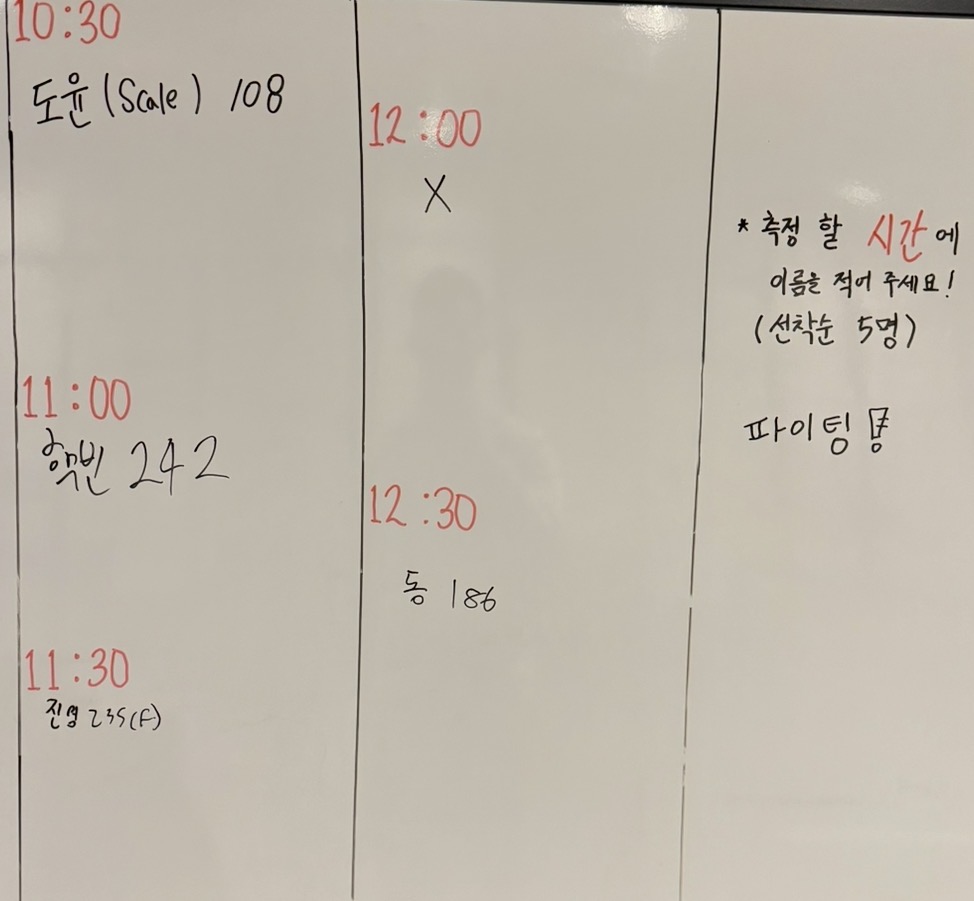 10:30
도윤(Scale) 108
11:00
학빈 242
11:30
진영 235(F)
12:00
X
12:30
동 186
* 측정 할 시간에
이름을 적어 주세요!
(선착순 5명)
파이팅!